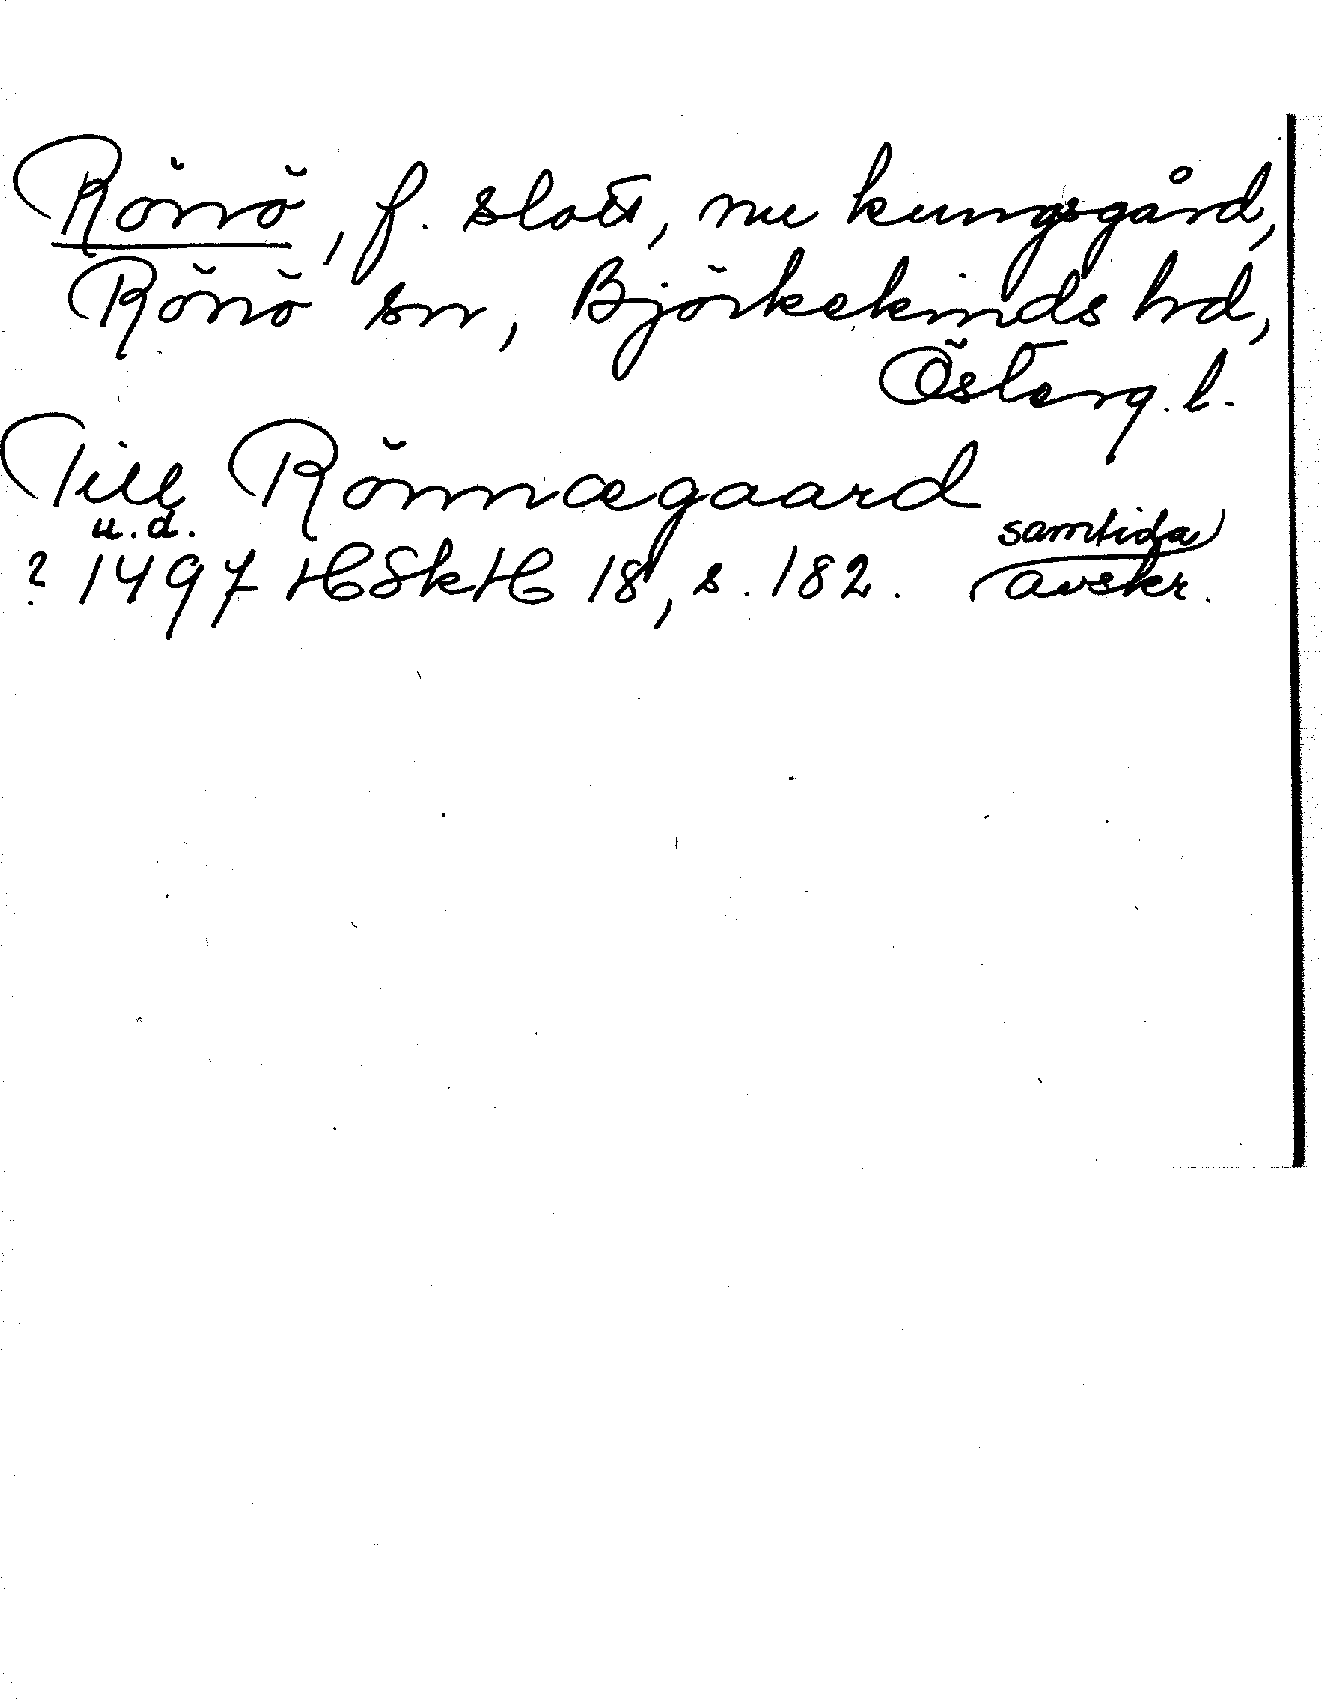 Rönö, f. slott, nu kungsgård,
Rönö sn, Björkekinds hd,
Österg. l.
Till Rönnægaard
u.d.
? 1497 HSkH 18, s. 182. samtida
avskr.